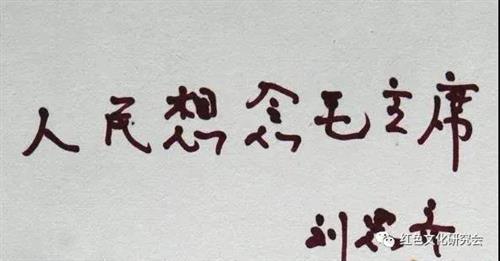 人民想念毛主席
刘思齐
红色文化研究会